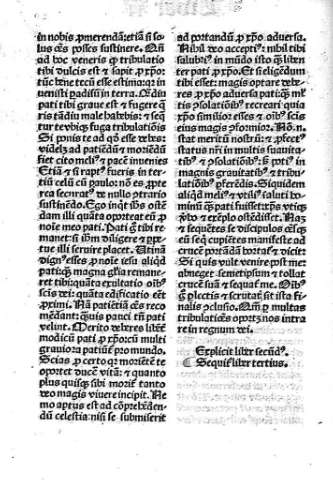 in nobis ꝓmerendā: etiā si omēs
posses sustinere. Qñ
ad hoc veneris ꝙ tribulatio
tibi dulcis est ⁊ sapit ꝓ xp̄o:
tūc bene tecū esse estima: qꝫ in
uenisti padisū in terra. Qᵃdiu
pati tibi graue est ⁊ fugere q̄
ris tādiu male habebis: ⁊ seq̄
tur te vbiqꝫ fuga tribulatiōis
Si ponis te ad qđ esse debes:
videlꝫ ad patiēdū ⁊ moriēdū
fiet cito meliꝰ ⁊ pacē inuenies
Etiā ⁊ si raptꝰ fueris in ter
tiū celū cū paulo: nō es ꝓpte
rea securatꝰ de nullo ꝯtrario
sustinēdo. Ego inqͥt ihūs oste
dam illi quāta oporteat eū ꝓ
noīe meo pati. Pati gͦ tibi re
manet: si ihm̄ diligere ⁊ ꝑpe
tue illi seruire placet. Utinā
dignꝰ esses ꝓ noīe iesu aliqͥd
pati: qᵃꝫ magna gl̄ia remane
ret tibi: quāta exultatio oībꝰ
scīs dei: quāta edificatio eēt
ꝓximi. Nā patiētiā oēs reco
mēdant: qᵃuis pauci tn̄ pati
velint. Merito deberes libēt̄
modicū pati ꝓ xp̄o: cū multi
grauiora patiūt̄ ꝓ mundo.
Scias ꝓ certo qꝫ moriētē te
oportet ducē vitā: ⁊ quanto
plus quisqꝫ sibi morit̄ tanto
deo magis viuere incipit. Ne
mo aptus est ad cōprehēdē
dū celestia: nisi se submiserit
ad portandū ꝓ xp̄o aduersa.
Nihil deo acceptiꝰ: nihil tibi
salubriꝰ in mūdo isto qᵃꝫ libēt̄
pati ꝓ xp̄o. Et si eligendū
tibi esset: magis optare debe
res ꝓ xp̄o aduersa pati: qᵃꝫ ml̄
tis ꝯsolatiōibꝰ recreari: quia
xp̄o similior esses ⁊ oībꝰ scīs
eiꝰ magis ꝯformior. Nō. n̄.
stat meritū nostrū: ⁊ ꝓfectꝰ
statꝰ nr̄i in multis suauita
tibꝰ ⁊ ꝯsolatiōibꝰ: sꝫ potiꝰ in
magnis grauitatibꝰ ⁊ tribu
latiōibꝰ ꝑferēdis. Siquidem
aliqͥd meliꝰ ⁊ vtiliꝰ saluti ho
minū qᵃꝫ pati fuisset: xp̄s vtiqꝫ
v̄bo ⁊ exēplo ostēdisset. Naꝫ
⁊ sequētes se discipulos oēsqꝫ
eū seqͥ cupiētes manifeste ad
crucē portādā hortat̄: ⁊ dicit:
Si quis vult venire post me:
abneget semetipsum ⁊ tollat
crucē suā ⁊ sequat̄ me. Oībꝰ
gͦ ꝑlectis ⁊ scrutatꝭ sit ista fi
nalis ꝯclusio. Qm̄ ꝑ multas
tribulatiōes oportꝫ nos intra
re in regnum dei.
Explicit liber secūdꝰ.
Sequit̄ liber tertius.